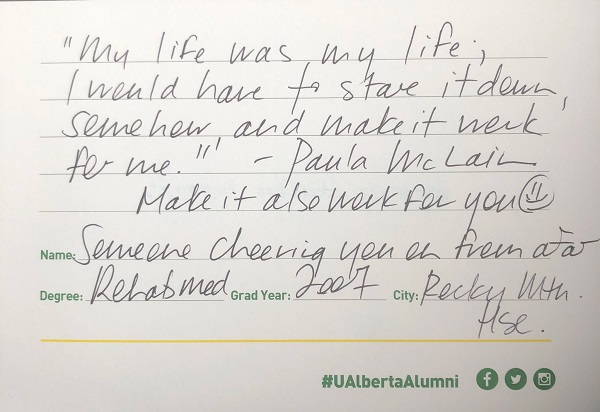 "My life was my life;
I would have to stare it down,
somehow, and make it work
for me." - Paula McLain
Make it also work for you
Name: Someone cheering you on from afar
Degree: Rehabmed Grad Year: 2007 City: Rocky Mtn.
Hse.
#UAlbertaAlumni